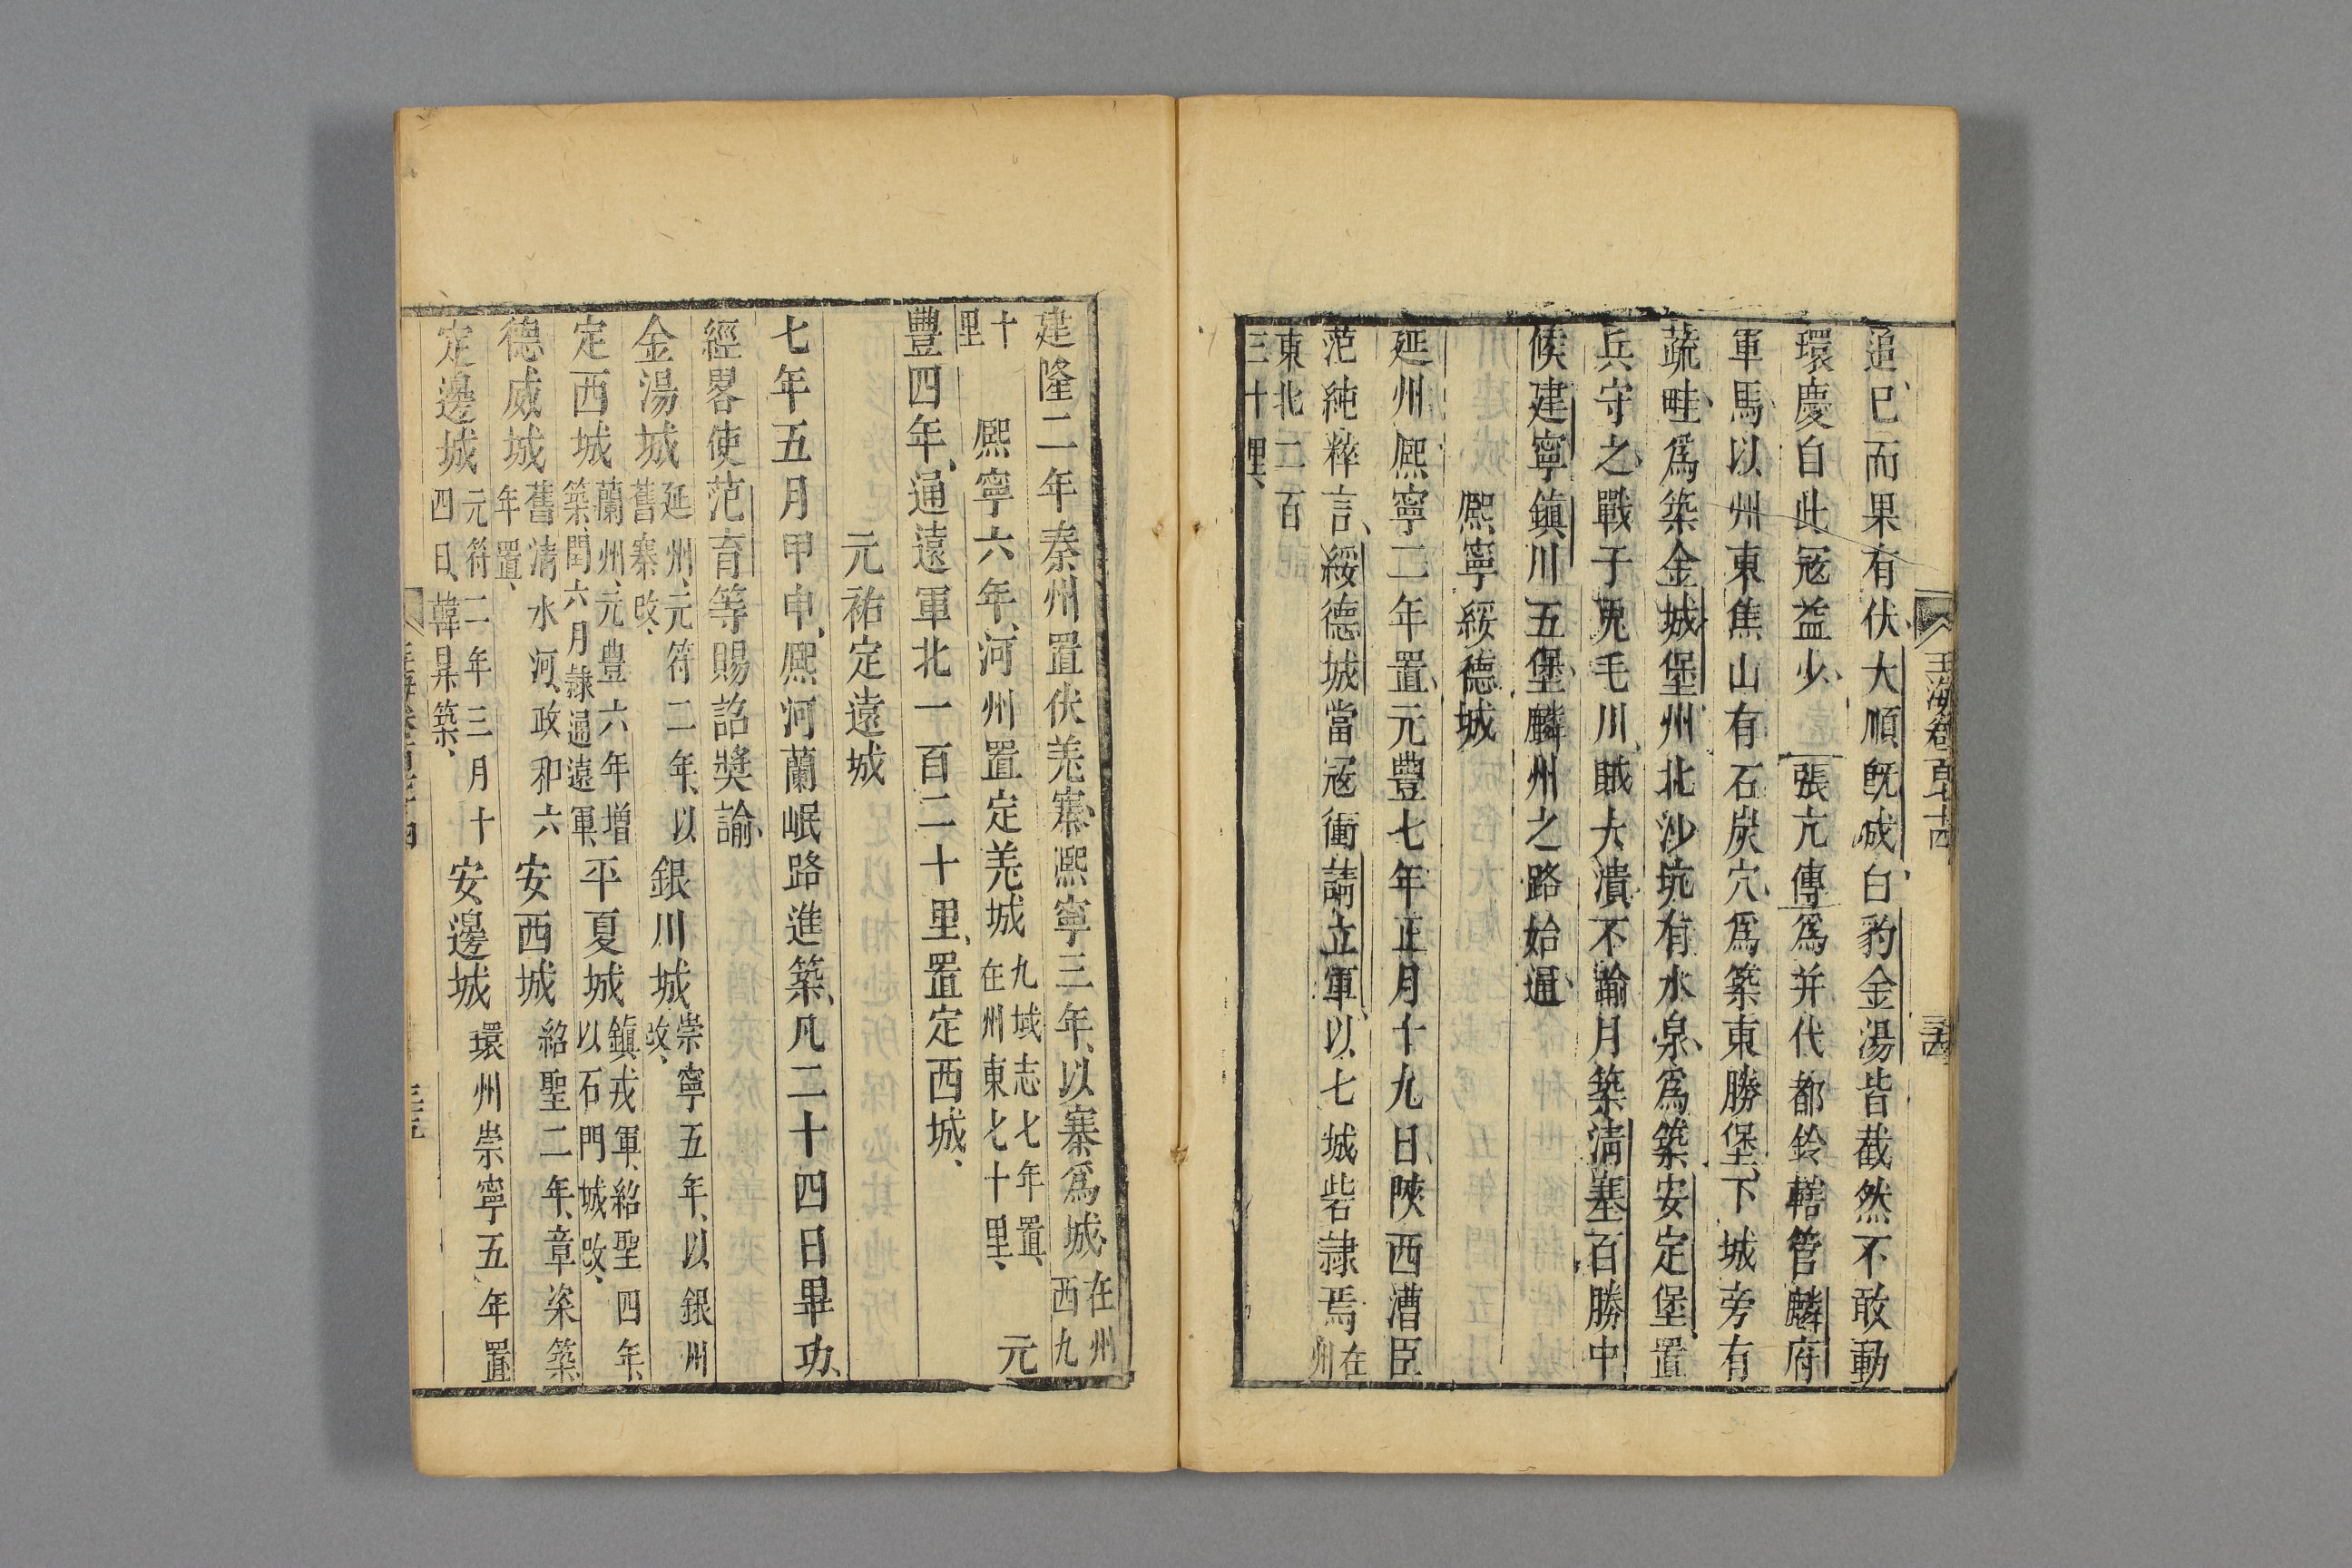 玉海卷百七十四
三十四
追已而果有伏大順旣成白豹金湯皆截然不敢動
環慶自此寇益少張亢傳爲并代都鈐轄管麟府
軍馬以州東焦山有石炭穴爲築東勝堡下城旁有
蔬畦爲築金城堡州北沙坑有水泉爲築安定堡置
兵守之戰于兎毛川賊大潰不踰月築淸塞百勝中
候建寧鎮川五堡麟州之路始通
熈寧綏德城
延州熈寧二年置元豐七年正月十九日陝西漕臣
范純粹言綏德城當寇衝請立軍以七城砦隷焉在州
東北二百三十里
建隆二年秦州置伏羌寨熈寧三年以寨爲城在州西九
十里熈寧六年河州置定羌城九域志七年置在州東七十里元
豐四年通遠軍北一百二十里置定西城
元祐定遠城
七年五月甲申熈河蘭岷路進築凡二十四日畢功
經畧使范育等賜詔奬諭
金湯城延州元符二年以舊寨改銀川城崇寧五年以銀州改
定西城蘭州元豐六年增築閏六月隷通遠軍平夏城鎮戎軍紹聖四年以石門城改
德威城舊淸水河政和六年置安西城紹聖二年章楶築
定邊城元符二年三月十四日韓杲築安邊城環州崇寧五年置
三十五